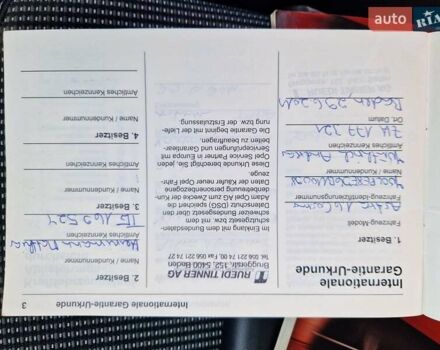 auto RIA
Internationale Garantie-Urkunde
3
Internationale
Garantie-Urkunde
1. Besitzer
Fahrzeug-Modell
Fahrzeug-Identifizierungsnummer
Name / Kundennummer
Amtliches Kennzeichen
ZH 177 321
Ort, Datum
Baden, 29.6.2011
RUEDI TINNER AG
Bruggerstr. 152, 5400 Baden
Tel. 056 221 74 00, Fax 056 221 74 27
Im Einklang mit dem Bundesdaten-
schutzgesetz bzw. mit dem schwei-
zerischen Bundesgesetz über den
Datenschutz (DSG) speichert die
Adam Opel AG zum Zwecke der Kun-
denbetreuung personenbezogene
Daten der Käufer neuer Opel Fahr-
zeuge.
Diese Urkunde berechtigt Sie, jeden
Opel Service Partner in Europa mit
Serviceprüfungen und Garantiear-
beiten zu beauftragen.
Die Garantie beginnt mit der Liefe-
rung bzw. der Erstzulassung.
2. Besitzer
Name / Kundennummer
Amtliches Kennzeichen
3. Besitzer
Name / Kundennummer
Amtliches Kennzeichen
4. Besitzer
Name / Kundennummer
Amtliches Kennzeichen